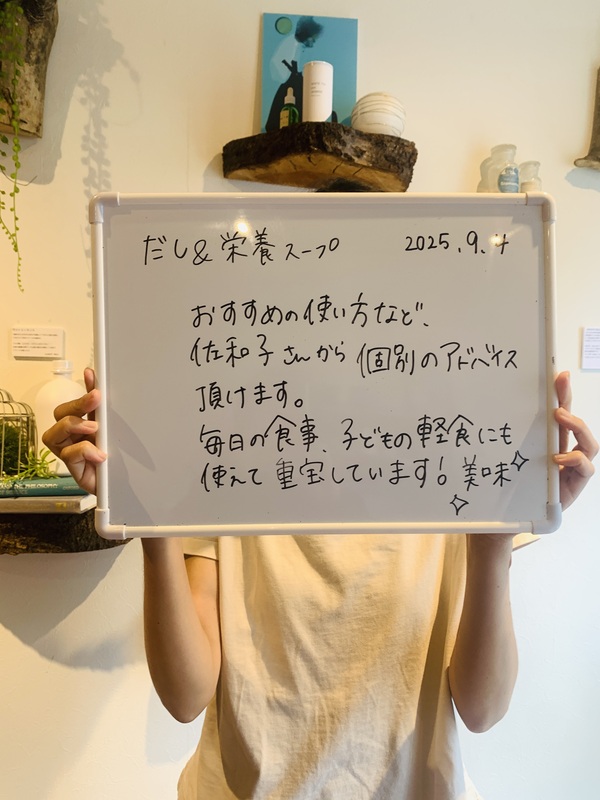 だし&栄養スープ 2025.9.4
おすすめの使い方など、
佐和子さんから個別のアドバイス
頂けます。
毎日の食事、子どもの軽食にも
使えて重宝しています! 美味